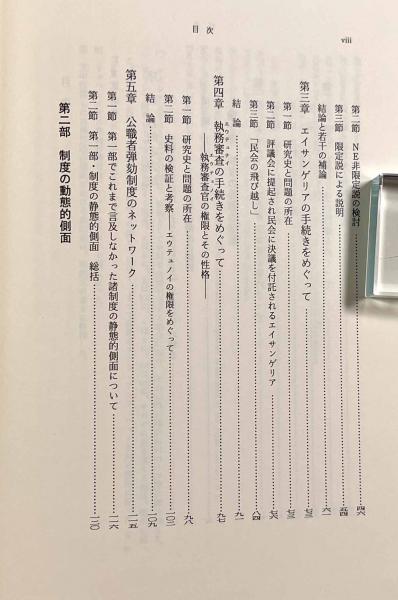 viii
目次
第二節　NE非限定説の検討……四六
第三節　限定説による説明……五四
結論と若干の補論……六一
第三章　エイサンゲリアの手続きをめぐって……七三
第一節　研究史と問題の所在……七三
第二節　評議会に提起され民会に決議を付託されるエイサンゲリア……七六
第三節　「民会の飛び越し」……八四
結論……九一
第四章　執務審査の手続きをめぐって……九七
――執務審査官の権限とその性格――
第一節　研究史と問題の所在……九八
第二節　史料の検証と考察――エウテュノイの権限をめぐって――……一〇二
結論……一〇九
第五章　公職者弾劾制度のネットワーク……一一五
第一節　第一部でこれまで言及しなかった諸制度の静態的側面について……一一六
第二節　第一部・制度の静態的側面　総括……一二〇
第二部　制度の動態的側面